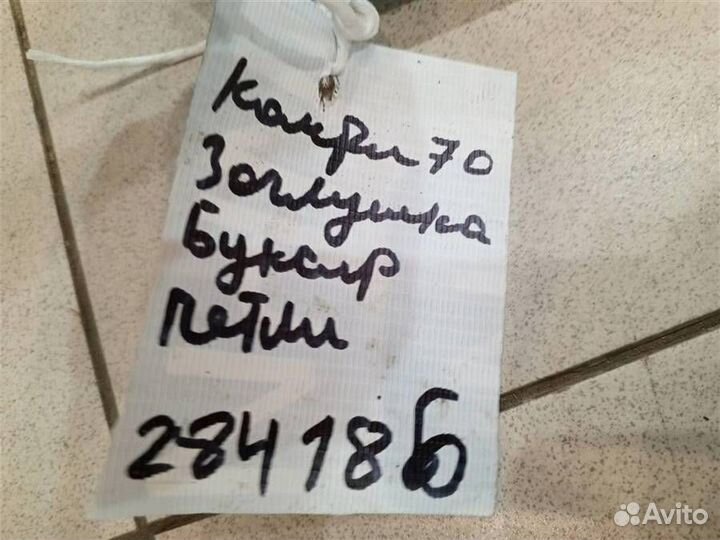 Камри 70
Заглушка
Буксир
петли
284186
Avito